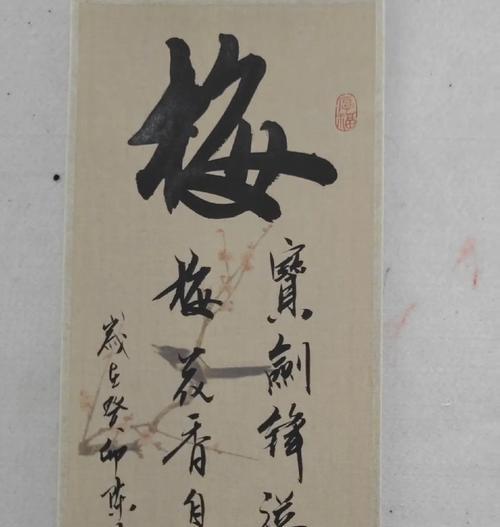 梅
寶劍鋒從
梅花香自
歲在癸卯